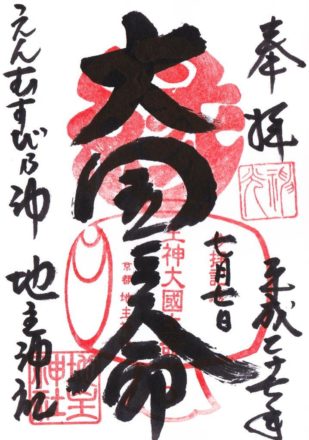 奉拝
平成二十七年
七月七日
大国主命
えんむすび乃神 地主神社
主神大國
京都 地主
地主神社